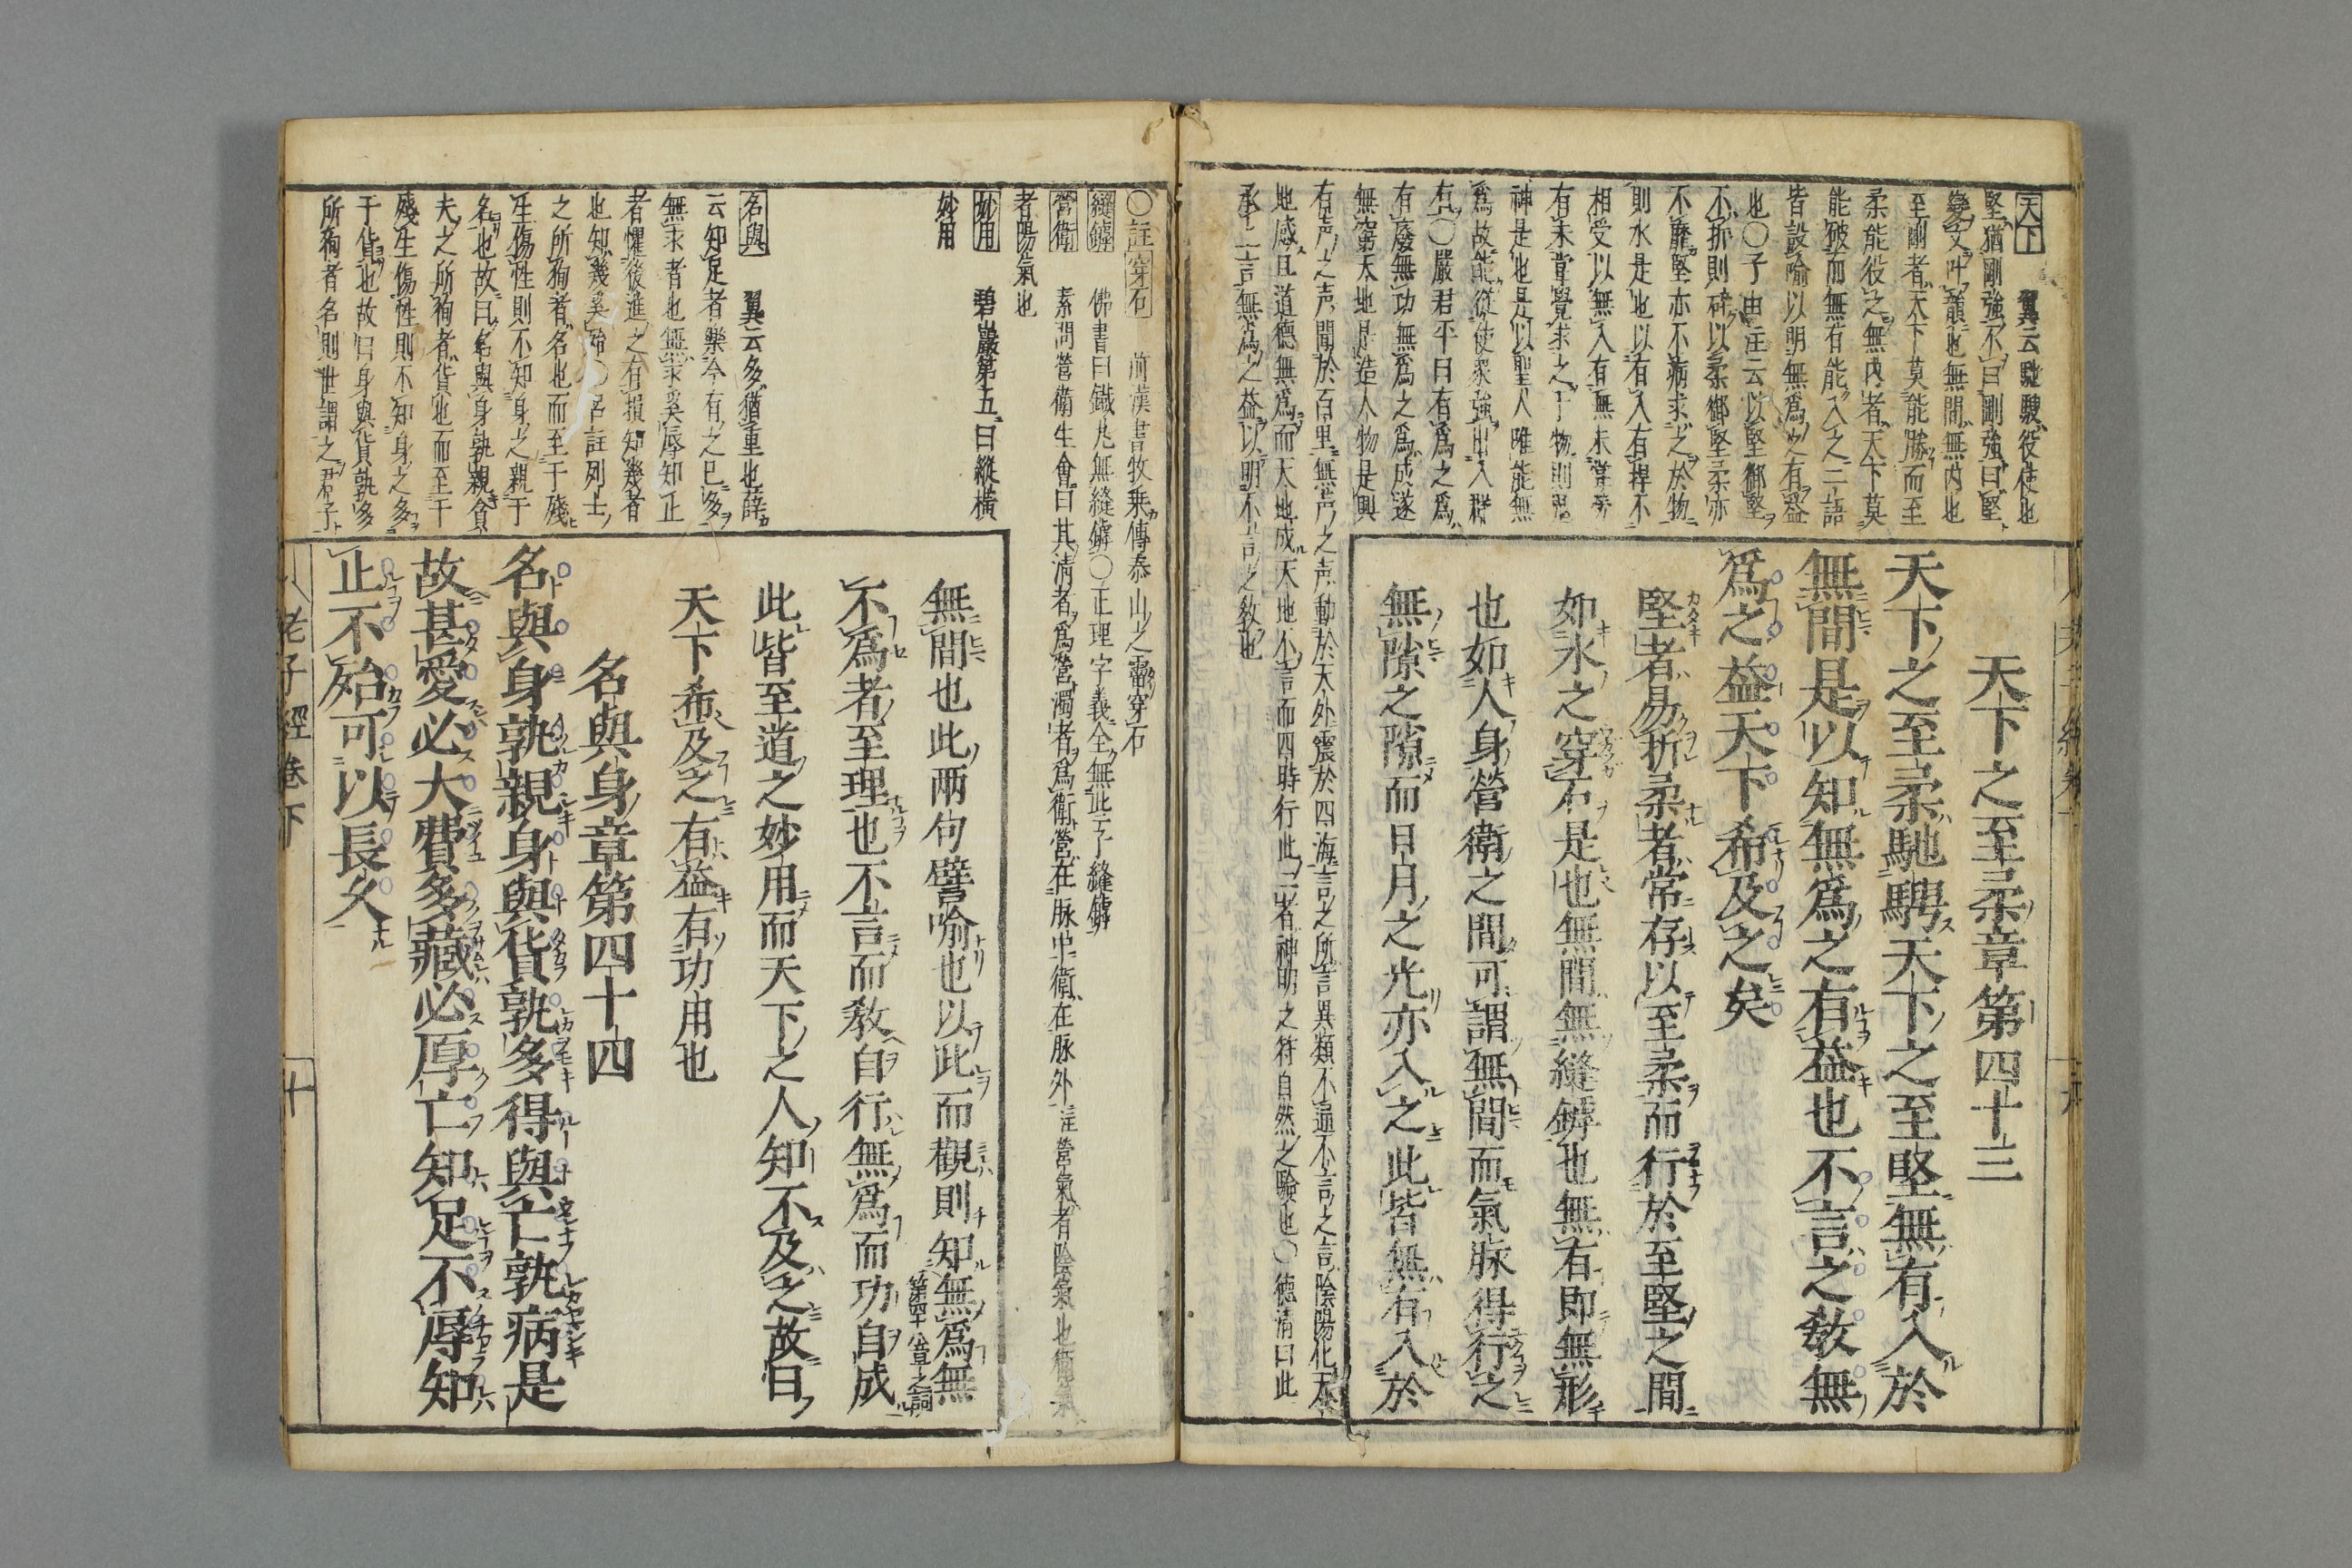 天下 翼云馳騁役使也
堅猶剛強不曰剛強曰堅
變文叶韻也無間無內也
至剛者天下莫能勝而至
柔能役之無內者天下莫
能破而無有能入之二語
皆設喻以明無爲之有益
也〇子由註云以堅御堅
不折則碎以柔御堅柔亦
不靡堅亦不病求之於物
則水是也以有入有捍不
相受以無入有無未嘗勞
有未嘗覺求之于物則鬼
神是也是以聖人唯能無
爲故能從使衆強出入群
有〇嚴君平曰有爲之爲
有廢無功無爲之爲成遂
無窮天地是造人物是興
有声之声聞於百里無声之声動於天外震於四海言之所言異類不通不言之言陰陽化天
地感且道德無爲而天地成天地不言而四時行此二者神明之符自然之驗也〇德淸曰此
承上言無爲之益以明不言之敎也
天下之至柔章第四十三
天下之至柔馳騁天下之至堅無有入於
無間是以知無爲之有益也不言之敎無
爲之益天下希及之矣
堅者易折柔者常存以至柔而行於至堅之間
如水之穿石是也無間無縫罅也無有即無形
也如人身營衛之間可謂無間而氣脉得行之
無隙之隙而日月之光亦入之此皆無有入於
〇註穿石 前漢書牧乗傳泰山之霤穿石
縫罅 佛書曰鐵丸無縫罅〇正理字義全無此子縫罅
營衛 素問營衛生會曰其淸者爲營濁者爲衛營在脉中衛在脉外註營氣者陰氣也衛氣
者陽氣也
妙用 碧巖第五曰縱橫
妙用
無間也此兩句譬喻也以此而觀則知無爲無
不爲者至理也不言而敎自行無爲而功自成
第四十八章之詞
此皆至道之妙用而天下之人知不及之故曰
天下希及之有益有功用也
名與 翼云多猶重也薛
云知足者樂今有之已多
無求者也無求奚辱知止
者懼後進之有損知幾者
也知幾奚殆〇呂註列士
之所徇者名也而至于殘
生傷性則不知身之親于
名也故曰名與身孰親貪
夫之所徇者貨也而至于
殘生傷性則不知身之多
于貨也故曰身與貨孰多
所徇者名則世謂之君子
名與身章第四十四
名與身孰親身與貨孰多得與亡孰病是
故甚愛必大費多藏必厚亡知足不辱知
止不殆可以長久
老子經卷下
十